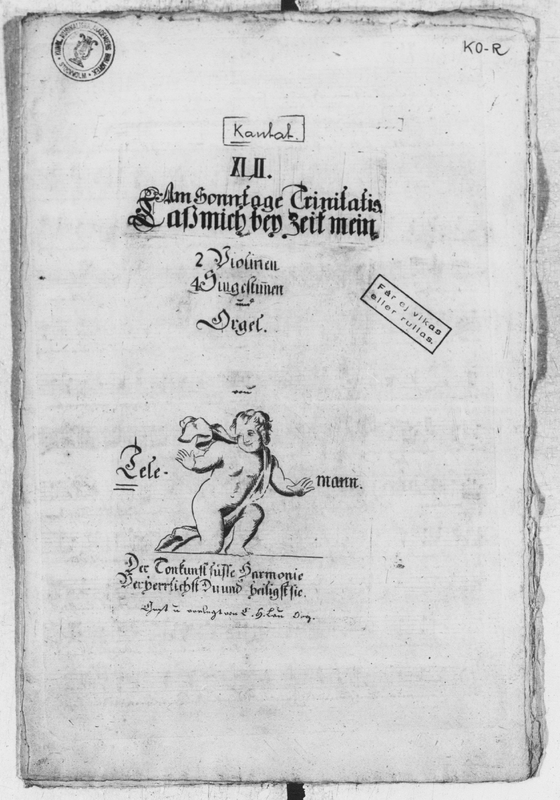 KO-R
Kantat.
XLII.
Am Sonntage Trinitatis
Laß mich bey Zeit mein
2 Violinen
4 Singestimen
Orgel.
Får ej vikas
eller rullas.
Tele- mann.
Der Tonkunst süsse Harmonie
Verherrlichst Du und heiligst sie.
C. H. Lau Org.